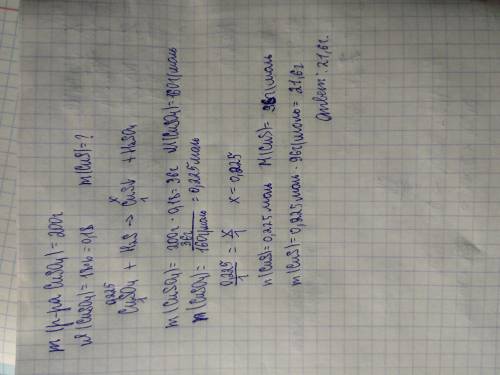 m (р-ра CuSO₄) = 200г
w (CuSO₄) = 18% = 0,18 m(CuS) = ?
0,225 x
CuSO₄ + H₂S → CuS↓ + H₂SO₄
1 1
m(CuSO₄) = 200г · 0,18 = 36г M(CuSO₄) = 160г/моль
n(CuSO₄) = 36г / 160г/моль = 0,225моль
0,225/1 = x/1 x = 0,225
n(CuS) = 0,225моль M(CuS) = 96г/моль
m(CuS) = 0,225моль · 96г/моль = 21,6г
Ответ: 21,6г.